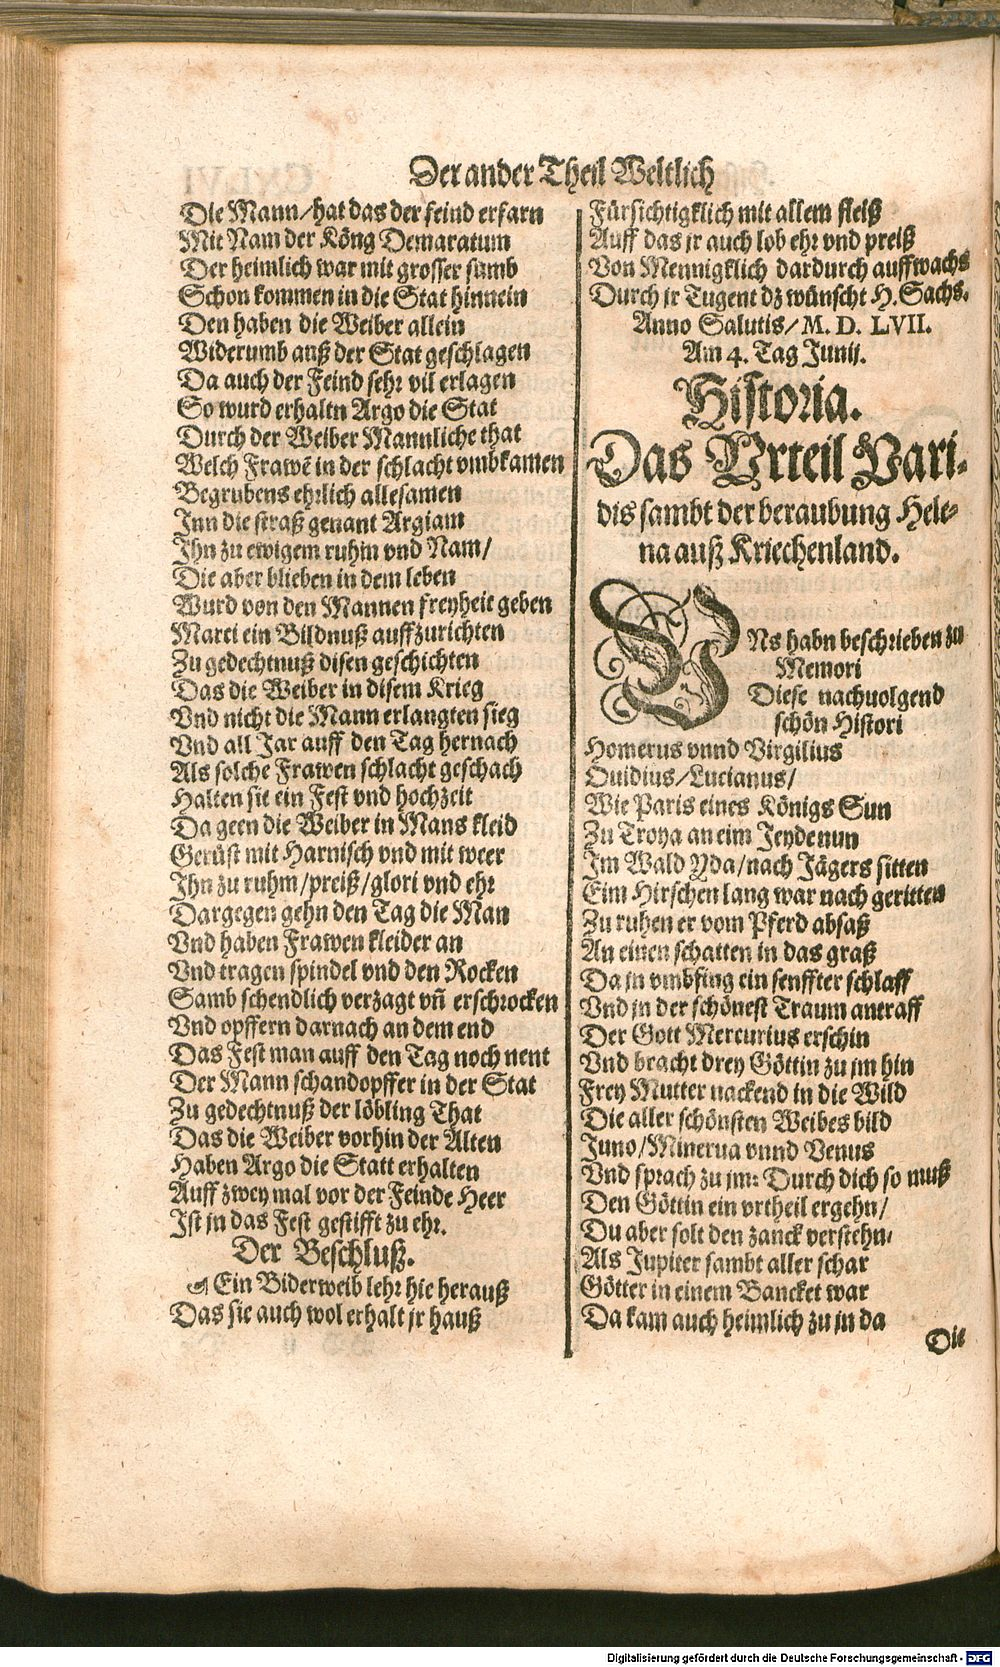 Der ander Theil Weltlich
Die Mann/hat das der feind erfarn
Mit Nam der Köng Demaratum
Der heimlich war mit grosser sumb
Schon kommen in die Stat hinnein
Den haben die Weiber allein
Widerumb auß der Stat geschlagen
Da auch der Feind sehr vil erlagen
So wurd erhaltn Argo die Stat
Durch der Weiber Mannliche that
Welch Frawẽ in der schlacht vmbkamen
Begrubens ehrlich allesamen
Inn die straß genant Argiam
Ihn zu ewigem ruhm vnd Nam/
Die aber blieben in dem leben
Wurd von den Mannen freyheit geben
Marti ein Bildnuß auffzurichten
Zu gedechtnuß disen geschichten
Das die Weiber in disem Krieg
Vnd nicht die Mann erlangten sieg
Vnd all Jar auff den Tag hernach
Als solche Frawen schlacht geschach
Halten sie ein Fest vnd hochzeit
Da geen die Weiber in Mans kleid
Gerüst mit Harnisch vnd mit weer
Ihn zu ruhm/preiß/glori vnd ehr
Dargegen gehn den Tag die Man
Vnd haben Frawen kleider an
Vnd tragen spindel vnd den Rocken
Samb schendlich verzagt vñ erschrocken
Vnd opffern darnach an dem end
Das Fest man auff den Tag noch nent
Der Mann schandopffer in der Stat
Zu gedechtnuß der löbling That
Das die Weiber vorhin der Alten
Haben Argo die Statt erhalten
Auff zwey mal vor der Feinde Heer
Ist jn das Fest gestifft zu ehr.
Der Beschluß.
☙ Ein Biderweib lehr hie herauß
Das sie auch wol erhalt jr hauß
Fürsichtigklich mit allem fleiß
Auff das jr auch lob ehr vnd preiß
Von Mennigklich dardurch auffwachs
Durch jr Tugent dz wünscht H. Sachs.
Anno Salutis/M. D. LVII.
Am 4. Tag Junij.
Historia.
Das Vrteil Pari-
dis sambt der beraubung Hele-
na auß Kriechenland.
VNs habn beschrieben zu
Memori
Diese nachuolgend
schön Histori
Homerus vnnd Virgilius
Ouidius/Lucianus/
Wie Paris eines Königs Sun
Zu Troya an eim Jeyde nun
Im Wald Yda/nach Jägers sitten
Eim Hirschen lang war nach geritten
Zu ruhen er vom Pferd absaß
An einen schatten in das graß
Da jn vmbfing ein senffter schlaff
Vnd jn der schönest Traum antraff
Der Gott Mercurius erschin
Vnd bracht drey Göttin zu jm hin
Frey Mutter nackend in die Wild
Die aller schönsten Weibes bild
Juno/Minerua vnnd Venus
Vnd sprach zu jm: Durch dich so muß
Den Göttin ein vrtheil ergehn/
Du aber solt den zanck verstehn/
Als Jupiter sambt aller schar
Götter in einem Bancket war
Da kam auch heimlich zu jn da
Die
Digitalisierung gefördert durch die Deutsche Forschungsgemeinschaft - DFG